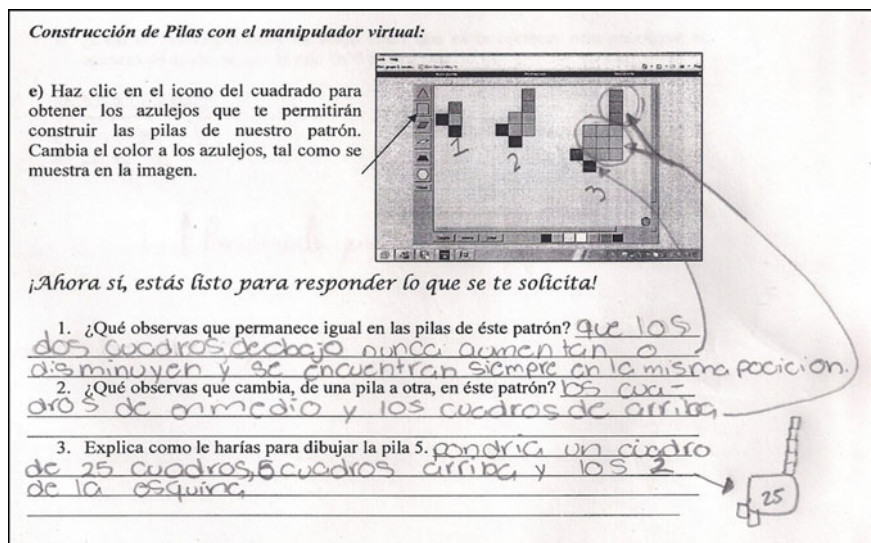 Construcción de Pilas con el manipulador virtual:
e) Haz clic en el icono del cuadrado para
obtener los azulejos que te permitirán
construir las pilas de nuestro patrón.
Cambia el color a los azulejos, tal como se
muestra en la imagen.
1
2
3
¡Ahora sí, estás listo para responder lo que se te solicita!
1. ¿Qué observas que permanece igual en las pilas de éste patrón? que los
dos cuadros de abajo nunca aumentan o
disminuyen y se encuentran siempre en la misma pocicion.
2. ¿Qué observas que cambia, de una pila a otra, en éste patrón? los cua-
dros de enmedio y los cuadros de arriba
3. Explica como le harías para dibujar la pila 5. pondria un cuadro
de 25 cuadros, 5 cuadros arriba y los 2
de la esquina
25